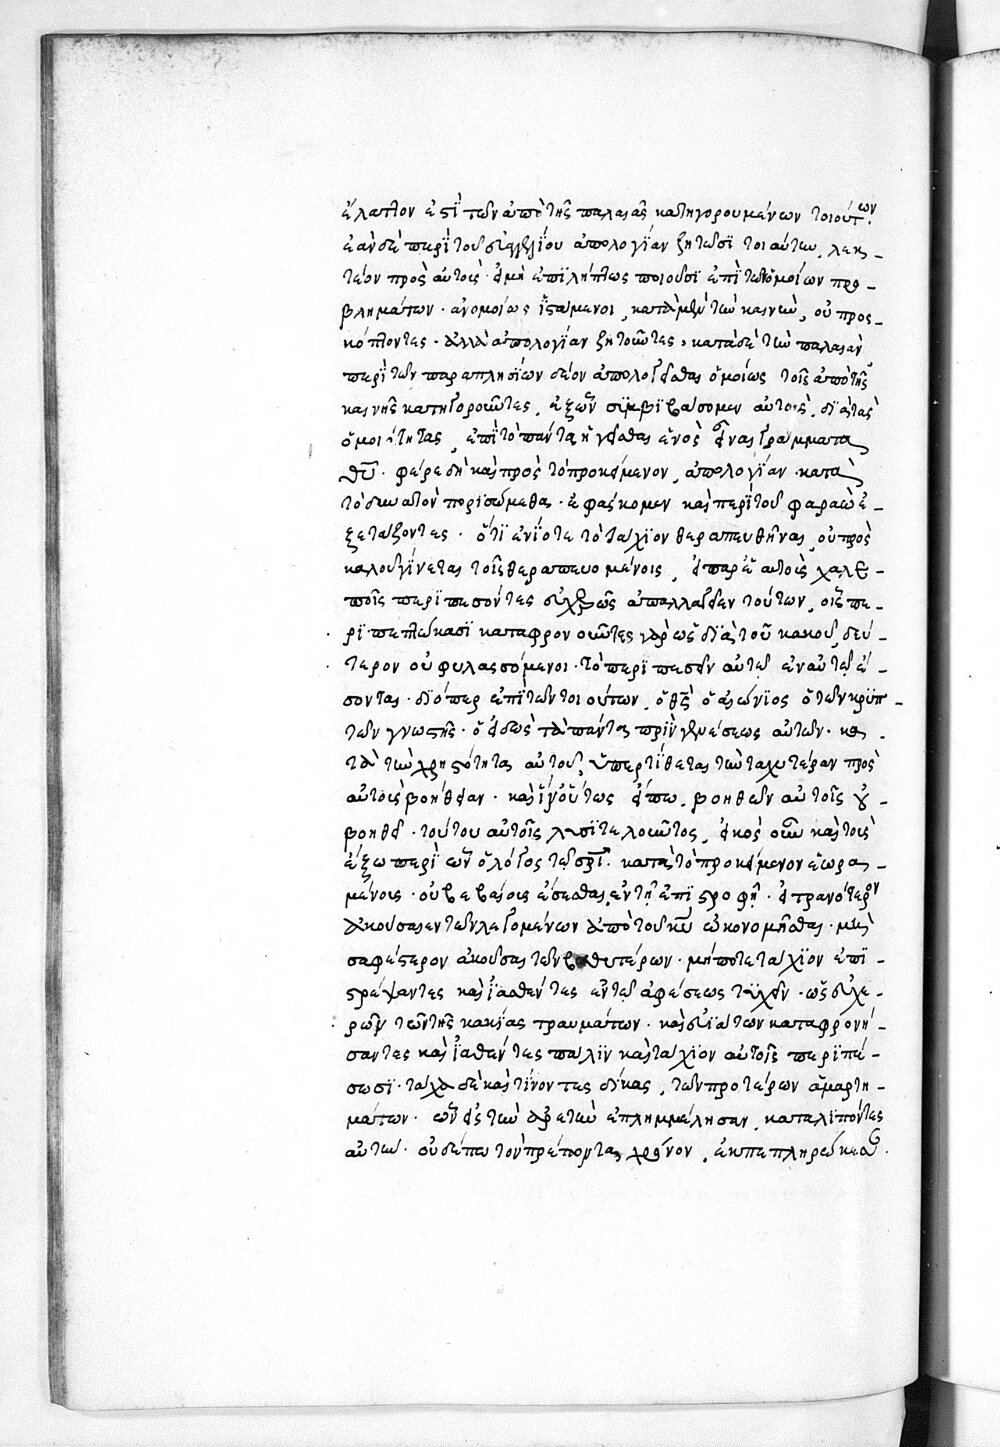 ἔλαττον ἐστὶ τῶν ἀπὸ τῆς παλαιᾶς κατηγορουμένων τοιούτων.
ἐὰν δὲ περὶ τοῦ εὐαγγελίου ἀπολογίαν ζητῶσι τοιαύτην, λεκ-
τέον πρὸς αὐτοὺς· εἰ μὴ ἐπιλήπτως ποιοῦσι ἐπὶ τῶν ὁμοίων προ-
βλημάτων· ἀνομοίως ἱστάμενοι, κατὰ μὲν τὴν καινὴν, οὐ προσ-
κόπτοντες· ἀλλὰ ἀπολογίαν ζητοῦντες, κατὰ δὲ τὴν παλαιὰν
περὶ τῶν παραπλησίων δέον ἀπολογεῖσθαι ὁμοίως τοῖς ἀπὸ τῆς
καινῆς κατηγοροῦντες, ἐξ ὧν συμβιβάσομεν αὐτοὺς, διὰ τὰς
ὁμοιότητας, ἐπὶ τὸ πάντα ἡγεῖσθαι ἑνὸς εἶναι γράμματα
θῦ. φέρε δὴ καὶ πρὸς τὸ προκείμενον, ἀπολογίαν κατὰ
τὸ δυνατὸν πορισώμεθα. ἐφάσκομεν καὶ περὶ τοῦ φαραὼ ἐ-
ξετάζοντες· ὅτι ἐνίοτε τὸ τάχιον θεραπευθῆναι, οὐ πρὸς
καλοῦ γίνεται τοῖς θεραπευομένοις, εἰ παρ' ἑαυτοὺς χαλε-
ποῖς περιπεσόντες εὐχερῶς ἀπαλλαγεῖεν τούτων, οἷς πε-
ριπεπτώκασι καταφρονοῦντες γὰρ ὡς διὰ τοῦ κακοῦ, δεύ-
τερον οὐ φυλασσόμενοι· τὸ περιπεσεῖν αὐτῷ ἐν αὐτῷ ἔ-
σονται. διόπερ ἐπὶ τῶν τοιούτων, ὁ θς ὁ αἰώνιος ὁ τῶν κρυπ-
τῶν γνωστὴς· ὁ εἰδὼς τὰ πάντα πρὶν γενέσεως αὐτῶν· κα-
τὰ τὴν χρηστότητα αὐτοῦ, ὑπερτίθεται τὴν ταχυτέραν πρὸς
αὐτοὺς βοήθειαν· καὶ ἵν' οὕτως εἴπω, βοηθῶν αὐτοῖς οὐ
βοηθεῖ· τούτου αὐτοῖς λυσιτελοῦντος, εἰκὸς οὖν καὶ τοὺς
ἔξω περὶ ὧν ὁ λόγος τῷ σρι. κατὰ τὸ προκείμενον ἑωρα-
μένοις· οὐ βεβαίοις ἔσεσθαι ἐν τῇ ἐπιστροφῇ· εἰ τρανότερον
ἀκούσαιεν τῶν λεγομένων ἀπὸ τοῦ κῦ ᾠκονομῆσθαι· μὴ
σαφέστερον ἀκοῦσαι τῶν βαθυτέρων· μήποτε τάχιον ἐπι-
στρέψαντες καὶ ἰαθέντες ἐν τῷ ἀφέσεως τυχεῖν· ὡς εὐχε-
ρῶν τῶν τῆς κακίας τραυμάτων· καὶ εὐιάτων καταφρονή-
σαντες καὶ ἰαθέντες πάλιν καὶ τάχιον αὐτοῖς περιπέ-
σωσι. τάχα δὲ καὶ τίνοντες δίκας, τῶν προτέρων ἁμαρτη-
μάτων· ὧν εἰς τὴν ἀρετὴν ἐπλημμέλησαν, καταλιπόντες
αὐτὴν· οὐδέπω τὸν πρέποντα χρόνον, ἐκπεπληρώκεσαν.